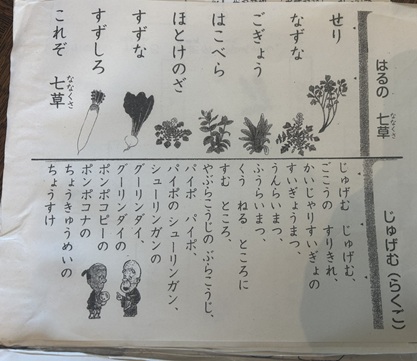 はるの 七草
ななくさ
せり
なずな
ごぎょう
はこべら
ほとけのざ
すずな
すずしろ
これぞ 七草
ななくさ
じゅげむ(らくご)
じゅげむ じゅげむ、
ごこうの すりきれ、
かいじゃりすいぎょの
すいぎょうまつ、
うんらいまつ、
ふうらいまつ、
くう ねる ところに
すむ ところ、
やぶらこうじの ぶらこうじ、
パイポ パイポ、
パイポの シューリンガン、
シューリンガンの
グーリンダイ、
グーリンダイの
ポンポコピーの
ポンポコナの
ちょうきゅうめいの
ちょうすけ